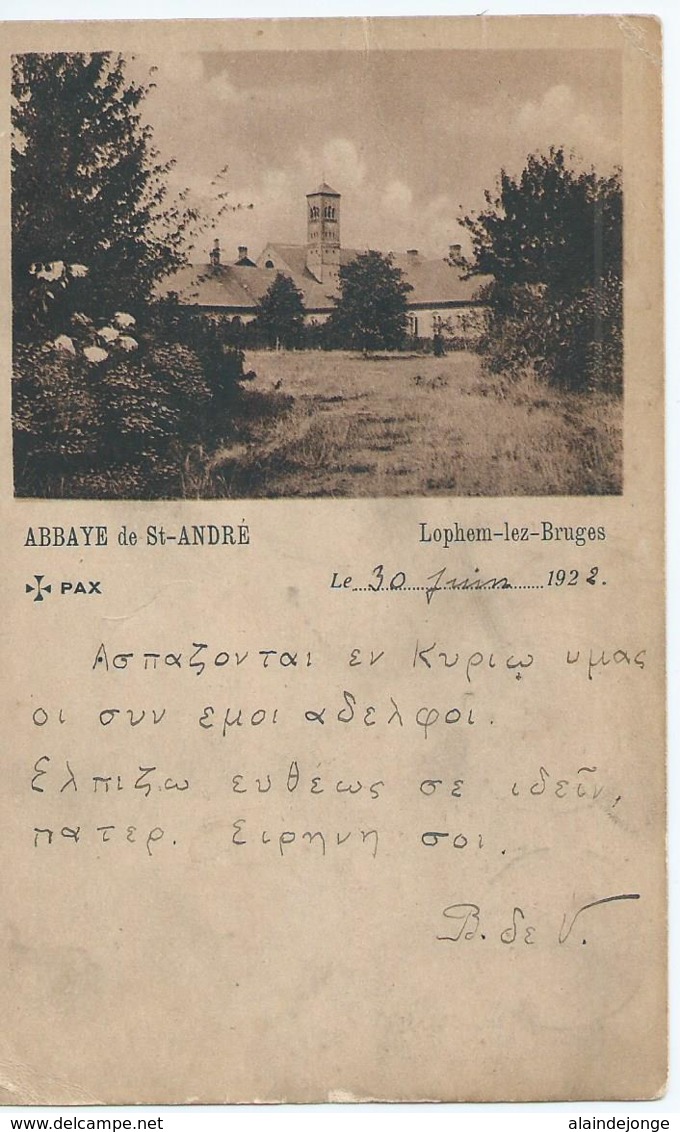 ABBAYE de St-ANDRÉ Lophem-lez-Bruges
PAX Le 30 Juin 1922.
Ασπαζονται εν Κυριῳ υμας
οι συν εμοι αδελφοι.
Ελπιζω ευθέως σε ιδεῖν,
πατερ. Ειρηνη σοι.
B. δε V.
alaindejonge